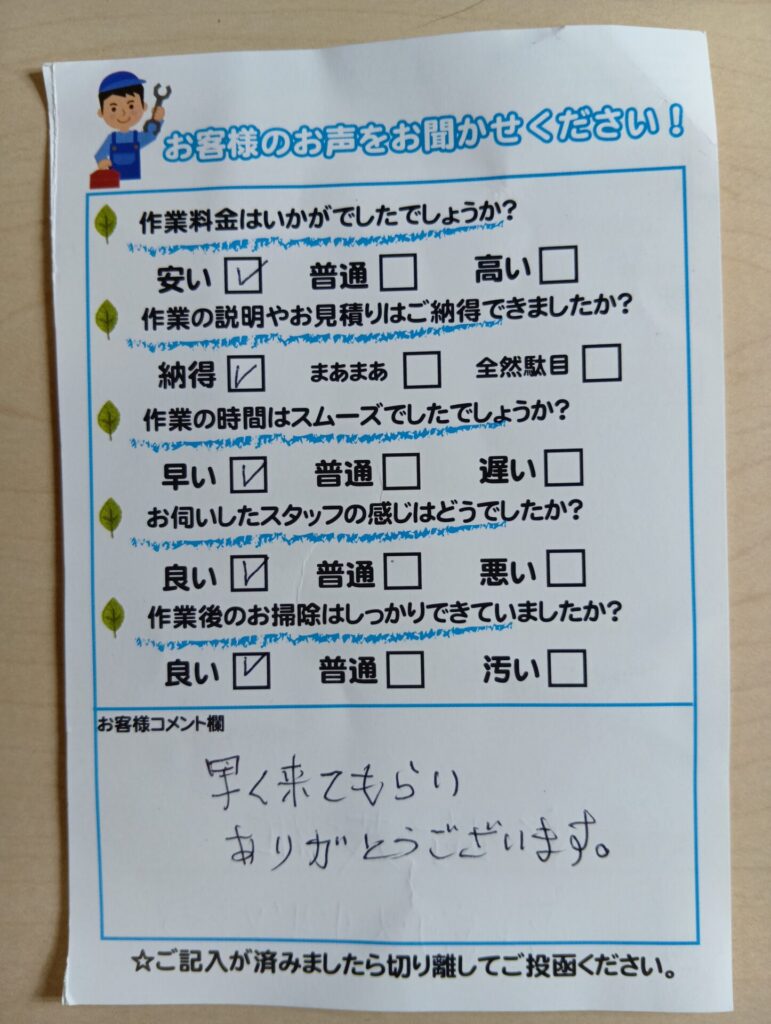 お客様のお声をお聞かせください！
作業料金はいかがでしたでしょうか?
安い ☑ 普通 □ 高い □
作業の説明やお見積りはご納得できましたか?
納得 ☑ まあまあ □ 全然駄目 □
作業の時間はスムーズでしたでしょうか?
早い ☑ 普通 □ 遅い □
お伺いしたスタッフの感じはどうでしたか?
良い ☑ 普通 □ 悪い □
作業後のお掃除はしっかりできていましたか?
良い ☑ 普通 □ 汚い □
お客様コメント欄
早く来てもらい
ありがとうございます。
☆ご記入が済みましたら切り離してご投函ください。